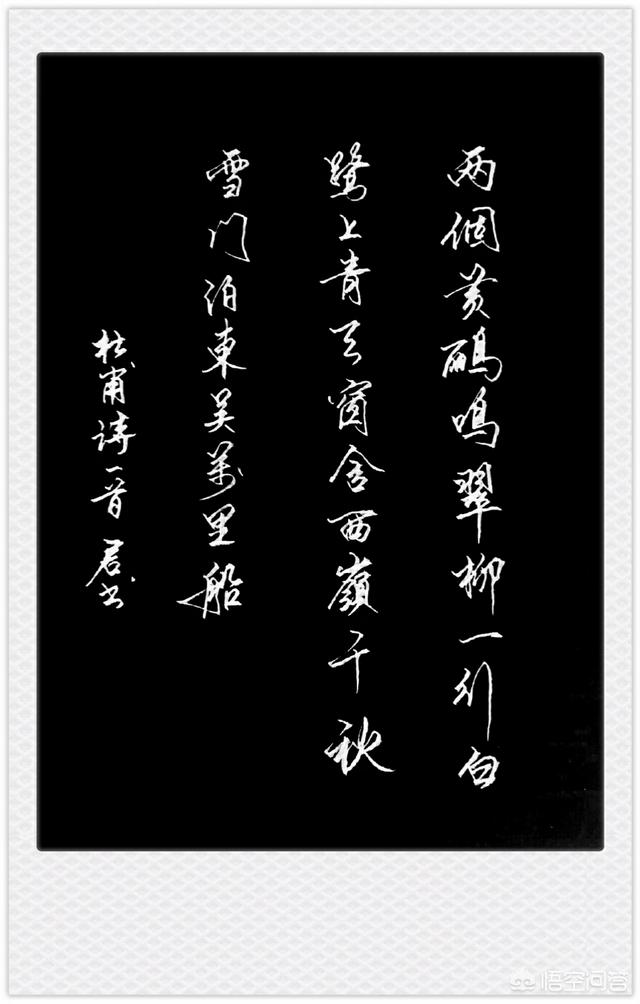 两個黄鹂鸣翠柳一行白
鹭上青天窗含西嶺千秋
雪门泊東吴萬里船
杜甫诗一首 君书
悟空问答